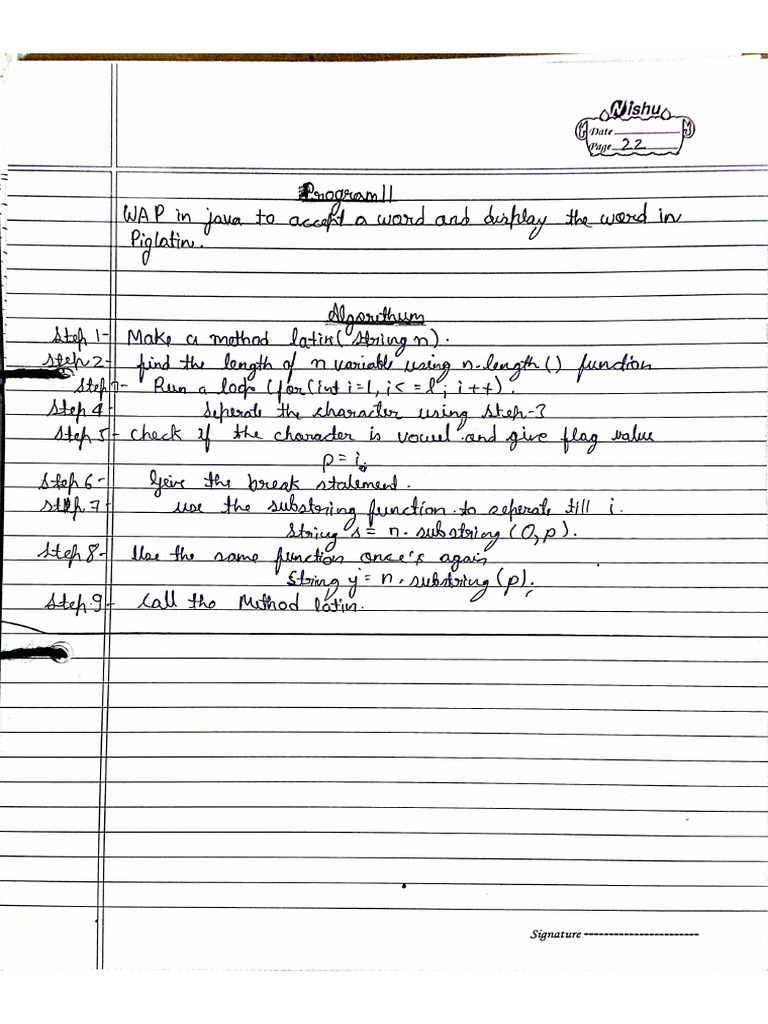 Nishu
Date
Page 22
Program 11
WAP in java to accept a word and display the word in
Piglatin.
Algorethum
Step 1- Make a method latin(string n).
Step 2- find the length of n variable using n.length() function
Step 3- Run a loop (for(int i=1, i<=l; i++).
Step 4- Seperate the character using step-3
Step 5- check if the character is vowel and give flag value
p=i.
Step 6- Give the break statement.
Step 7- use the substring function to seperate till i.
String s= n.substring(0,p).
Step 8- Use the same function once's again
String y= n.substring(p);
Step 9- Call the Method latin.
Signature